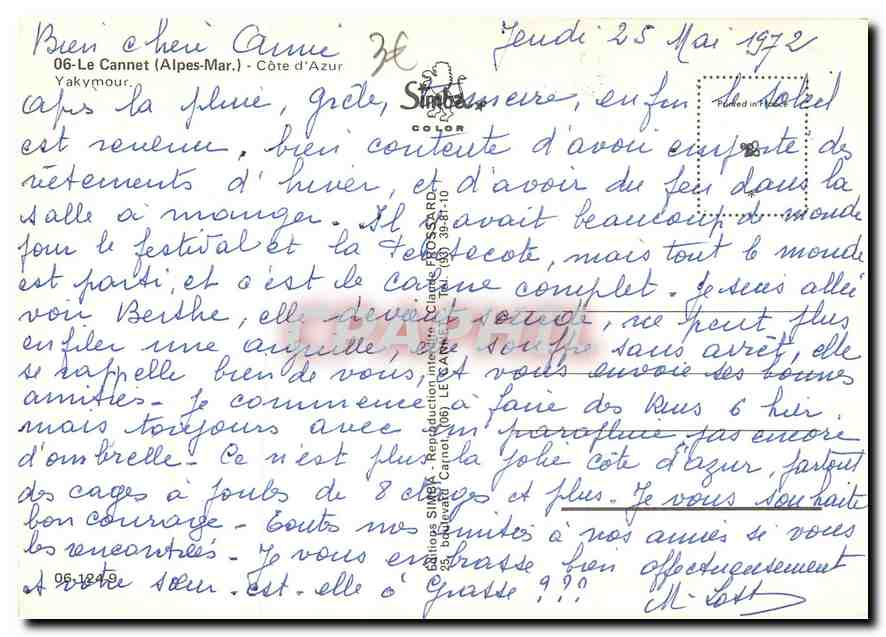 Bien cheri Annie 3€ Jeudi 25 Mai 1972
06-Le Cannet (Alpes-Mar.) - Côte d'Azur
Yakymour.
après la pluie, Grêle, tonnerre, enfin le soleil
Simba
COLOR
Printed in France
est revenu, bien contente d'avoir emporté des
vêtements d'hiver, et d'avoir du feu dans la
salle à manger. Il y avait beaucoup de monde
pour le festival et la Pentecote, mais tout le monde
est parti, et c'est le calme complet. Je suis allée
voir Berthe, elle devient sourde, ne peut plus
enfiler une aiguille, elle souffre sans arrêt, elle
se rappelle bien de vous, et vous envoie ses bonnes
amitiés. Je commence à faire des Kms 6 hier,
mais toujours avec un parapluie pas encore
d'ombrelle. Ce n'est plus la jolie côte d'azur, partout
des cages à poules de 8 etages et plus. Je vous souhaite
bon courage. Toutes mes amities à nos amies si vous
les rencontrés. Je vous embrasse bien affectueusement
06-124-9
et votre sœur est-elle à Grasse ???
M.
Editions SIMBA - Reproduction interdite - Claude FROSSARD
25, boulevard Carnot, (06) LE CANNET Tél. (93) 39-81-10
CPAPHIL